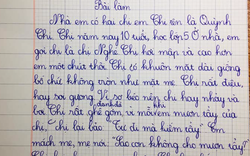 Bài làm
Nhà em có hai chị em. Chị tên là Quỳnh
Chi. Chị năm nay 10 tuổi, học lớp 5. Ở nhà, em
gọi chị là chị Nghé. Chị hơi mập và cao hơn
em một chút thôi. Chị có khuôn mặt dài giống
bố chứ không tròn như mặt mẹ. Chị rất điệu,
hay soi gương. Vì sợ béo nên chị hay nhảy và
bơi. Chị rất ghét gôm, vì mỗi em mượn rẩy của
chị, chị lại bảo: " Tự đi mà kiếm rẩy". Em
mách mẹ, mẹ nói: "Sao con không cho mượn rẩy